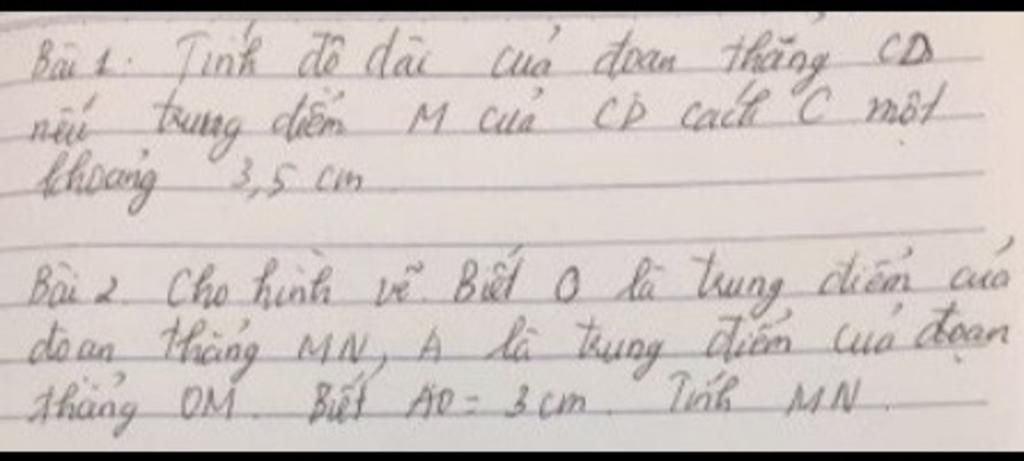 Bài 1. Tính độ dài của đoạn thẳng CD
nếu trung điểm M của CD cách C một
khoảng 3,5 cm
Bài 2. Cho hình vẽ. Biết O là trung điểm của
đoạn thẳng MN, A là trung điểm của đoạn
thẳng OM. Biết AO = 3 cm. Tính MN.